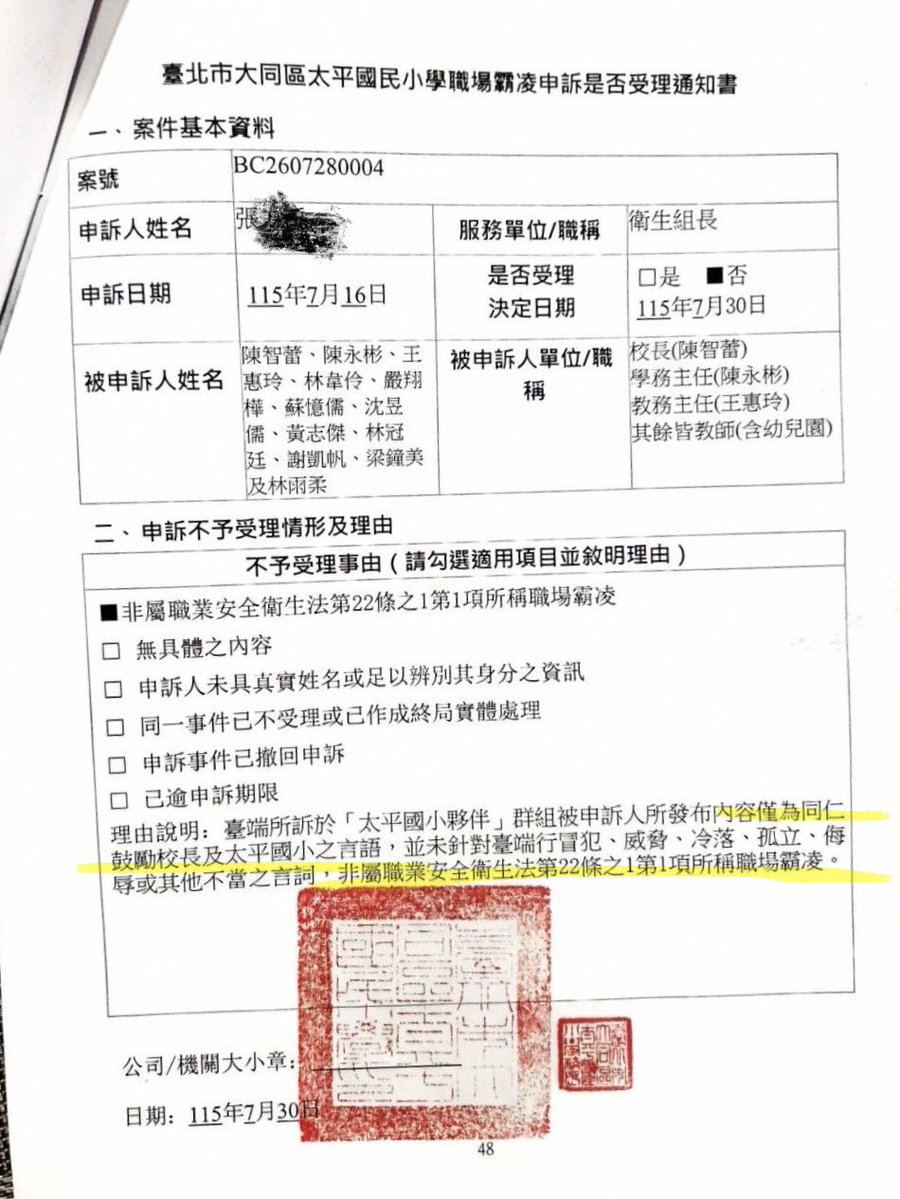 臺北市大同區太平國民小學職場霸凌申訴是否受理通知書
一、案件基本資料
案號
BC2607280004
申訴人姓名
張
服務單位/職稱
衛生組長
申訴日期
115年7月16日
是否受理
決定日期
□是 ■否
115年7月30日
被申訴人姓名
陳智蕾、陳永彬、王
惠玲、林韋伶、嚴翔
樺、蘇憶儒、沈昱
儒、黃志傑、林冠
廷、謝凱帆、梁鐘美
及林雨柔
被申訴人單位/職
稱
校長(陳智蕾)
學務主任(陳永彬)
教務主任(王惠玲)
其餘皆教師(含幼兒園)
二、申訴不予受理情形及理由
不予受理事由（請勾選適用項目並敘明理由）
■非屬職業安全衛生法第22條之1第1項所稱職場霸凌
□ 無具體之內容
□ 申訴人未具真實姓名或足以辨別其身分之資訊
□ 同一事件已不受理或已作成終局實體處理
□ 申訴事件已撤回申訴
□ 已逾申訴期限
理由說明：臺端所訴於「太平國小夥伴」群組被申訴人所發布內容僅為同仁
鼓勵校長及太平國小之言語，並未針對臺端行冒犯、威脅、冷落、孤立、侮
辱或其他不當之言詞，非屬職業安全衛生法第22條之1第1項所稱職場霸凌。
公司/機關大小章：
日期：115年7月30日
48